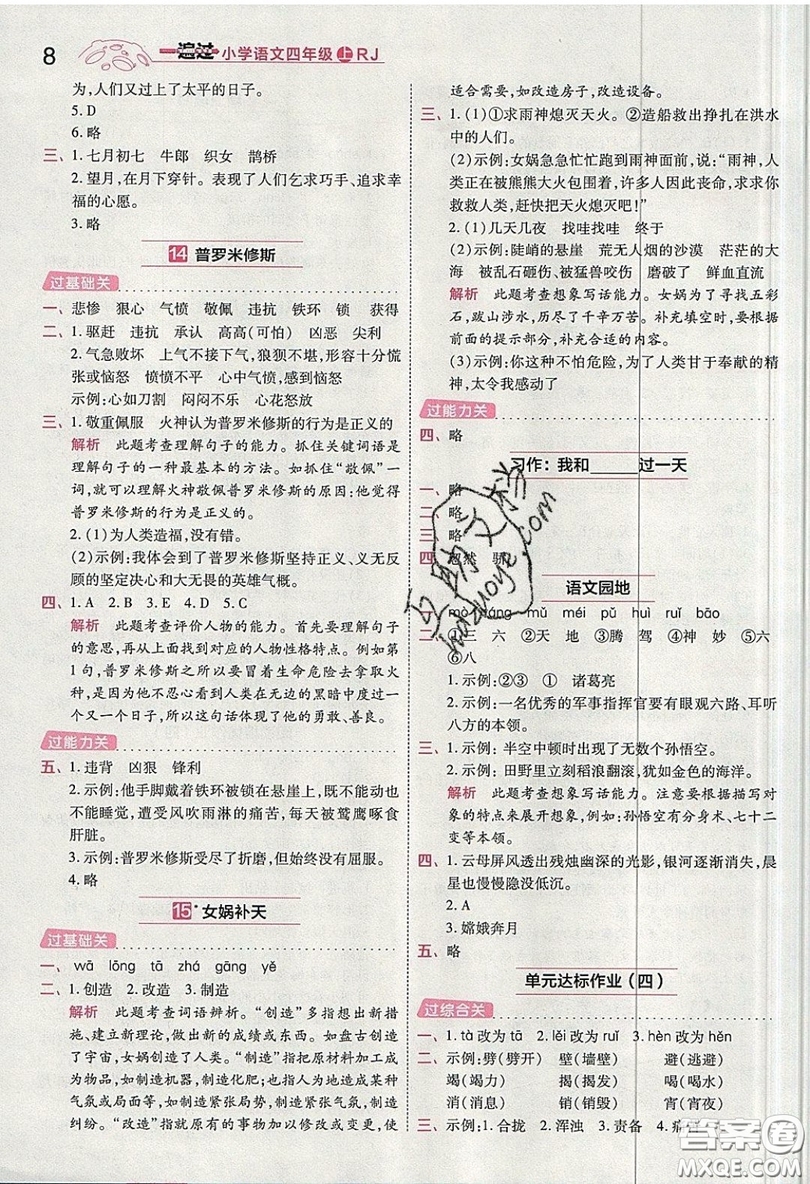 8
一遍过 小学语文四年级 上 RJ
为,人们又过上了太平的日子。
5. D
6. 略
三、1. 七月初七 牛郎 织女 鹊桥
2. 望月,在月下穿针。表现了人们乞求巧手、追求幸
福的心愿。
3. 略
14 普罗米修斯
过基础关
一、悲惨 狠心 气愤 敬佩 违抗 铁环 锁 获得
二、1. 驱赶 违抗 承认 高高(可怕) 凶恶 尖利
2. 气急败坏 上气不接下气,狼狈不堪,形容十分慌
张或恼怒 愤愤不平 心中气愤,感到恼怒
示例:心如刀割 闷闷不乐 心花怒放
三、1. 敬重佩服 火神认为普罗米修斯的行为是正义的
解析 此题考查理解句子的能力。抓住关键词语是
理解句子的一种最基本的方法。如抓住“敬佩”一
词,就可以理解火神敬佩普罗米修斯的原因:他觉得
普罗米修斯的行为是正义的。
2. (1)为人类造福,没有错。
(2)示例:我体会到了普罗米修斯坚持正义、义无反
顾的坚定决心和大无畏的英雄气概。
四、1. A 2. B 3. E 4. D 5. C
解析 此题考查评价人物的能力。首先要理解句子
的意思,再从上面找到对应的人物性格特点。例如第
1句,普罗米修斯之所以要冒着生命危险去拿取火
种,是因为他不忍心看到人类在无边的黑暗中度过一
个又一个日子,所以这句话体现了他的勇敢、善良。
过能力关
五、1. 违背 凶狠 锋利
2. 示例:他手脚戴着铁环被锁在悬崖上,既不能动也
不能睡,遭受风吹雨淋的痛苦,每天被鹫鹰啄食
肝脏。
3. 示例:普罗米修斯受尽了折磨,但一直没有屈服。
4. 略
15* 女娲补天
过基础关
一、wā lōng tā zhá gāng yě
二、1. 创造 2. 改造 3. 制造
解析 此题考查词语辨析。“创造”多指想出新措
施、建立新理论,做出新的成绩或东西。如盘古创造
了宇宙,女娲创造了人类。“制造”指把原材料加工
成为物品,如制造机器,制造化肥;也指人为地造成某种
气氛或局面,如制造紧张局势,制造紧张气氛,制造
纠纷。“改造”指就原有的事物加以修改或变更,使
适合需要,如改造房子,改造设备。
三、1. (1)①求雨神熄灭天火。②造船救出挣扎在洪水
中的人们。
(2)示例:女娲急急忙忙跑到雨神面前,说:“雨神,人
类正在被熊熊大火包围着,许多人因此丧命,求你救
救人类,赶快把天火熄灭吧!”
2. (1)几天几夜 找哇找哇 终于
(2)示例:陡峭的悬崖 荒无人烟的沙漠 茫茫的大
海 被乱石砸伤、被猛兽咬伤 磨破了 鲜血直流
解析 此题考查想象写话能力。女娲为了找五彩
石,跋山涉水,历尽了千辛万苦。补充填空时,要根据
前面的提示部分,补充合适的内容。
(3)示例:你这种不怕危险,为了人类甘于奉献的精
神,太令我感动了
过能力关
四、略
习作:我和______过一天
一、略
二、略
三、略
四、忽然
语文园地
mǔ méi pú huì ruǐ bāo
二、①三 六 ②天 地 ③腾 驾 ④神 妙 ⑤六
⑥八
1. 示例:②③ ① 诸葛亮
2. 示例:一名优秀的军事指挥官要有眼观六路、耳听
八方的本领。
三、1. 示例:半空中顿时出现无数个孙悟空。
2. 示例:田野里生长的稻浪翻滚,犹如金色的海洋。
解析 此题考查想象写话能力。注意要根据描写对
象的特点来展开想象,例如:孙悟空有分身术、七十二
变等本领。
四、1. 云母屏风透出残烛幽深的光影,银河逐渐消失,晨
星也慢慢隐没低沉。
2. A
3. 嫦娥奔月
五、略
单元达标作业(四)
过综合关
一、1. tà改为tā 2. lěi改为ruǐ 3. hèn改为hěn
二、示例:劈(劈开) 壁(墙壁) 避(逃避)
竭(竭力) 揭(揭发) 喝(喝水)
消(消息) 销(销毁) 宵(宵夜)
三、示例:1. 合拢 2. 浑浊 3. 责备 4.
互助文档
huzhuoye.com
答案圈
MXQE.COM